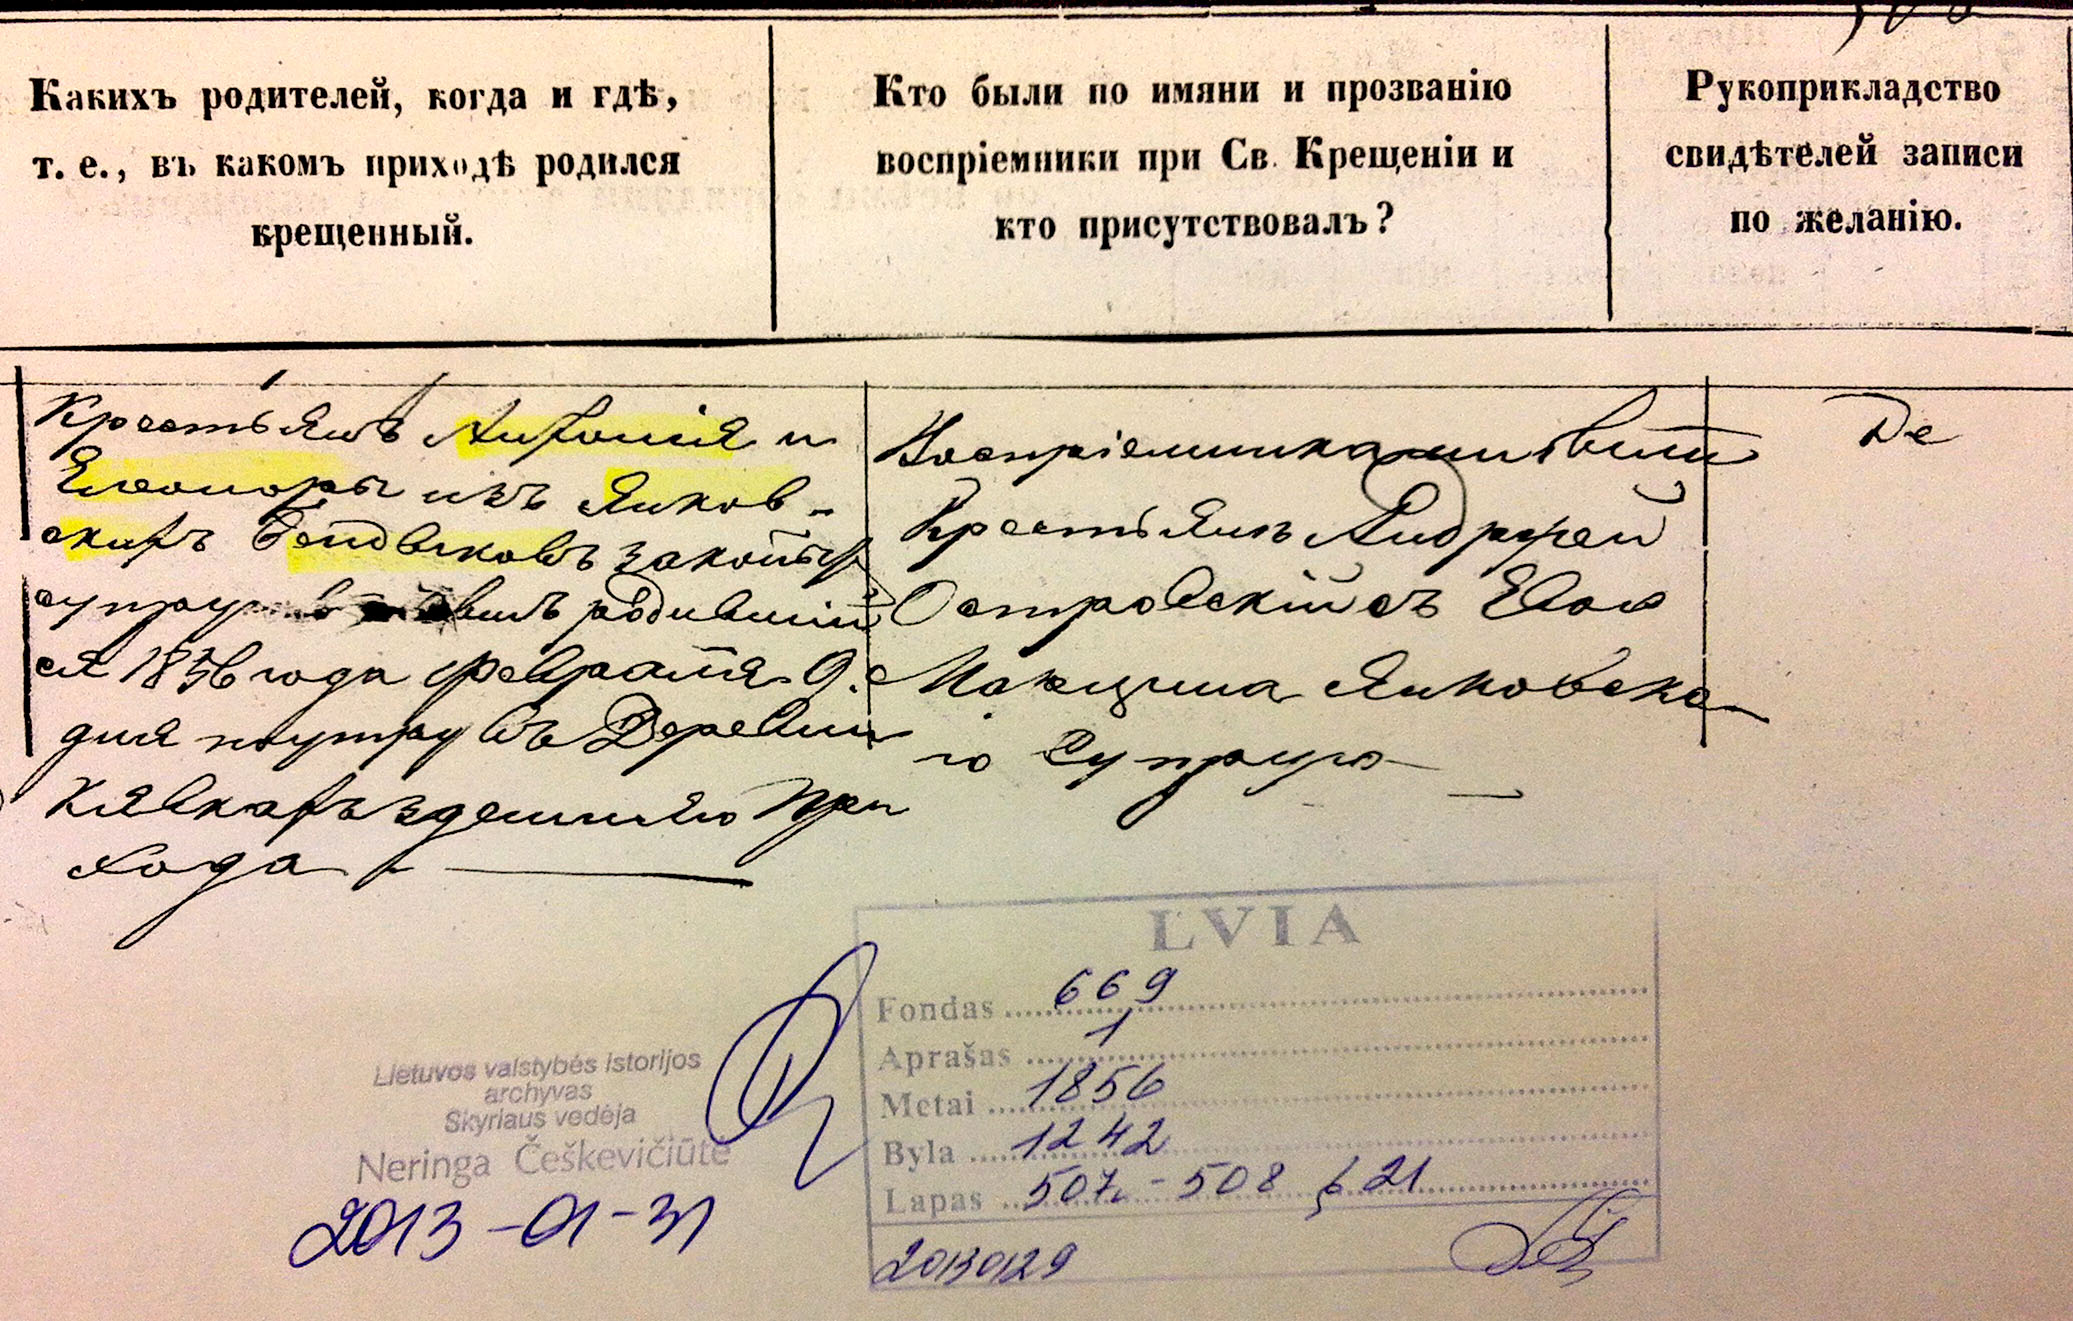 Какихъ родителей, когда и гдѣ,
т. е., въ какомъ приходѣ родился
крещенный.
Кто были по имяни и прозванію
воспріемники при Св. Крещеніи и
кто присутствовалъ?
Рукоприкладство
свидѣтелей записи
по желанію.
Крестьянъ Антонія и
Елеоноры изъ Янков-
скихъ
родившій
ся 1856 года февраля 9.
дня поутру въ Деревни
здешняго При
хода
Воспріемниками были
Крестьянъ Андржей
Островскій съ Евою
Янковска
го Супругою
De
LVIA
Fondas 669
Aprašas 1
Metai 1856
Byla 1242
Lapas 507 - 508 21
20130129
Lietuvos valstybės istorijos
archyvas
Skyriaus vedėja
Neringa Češkevičiūtė
2013-01-31